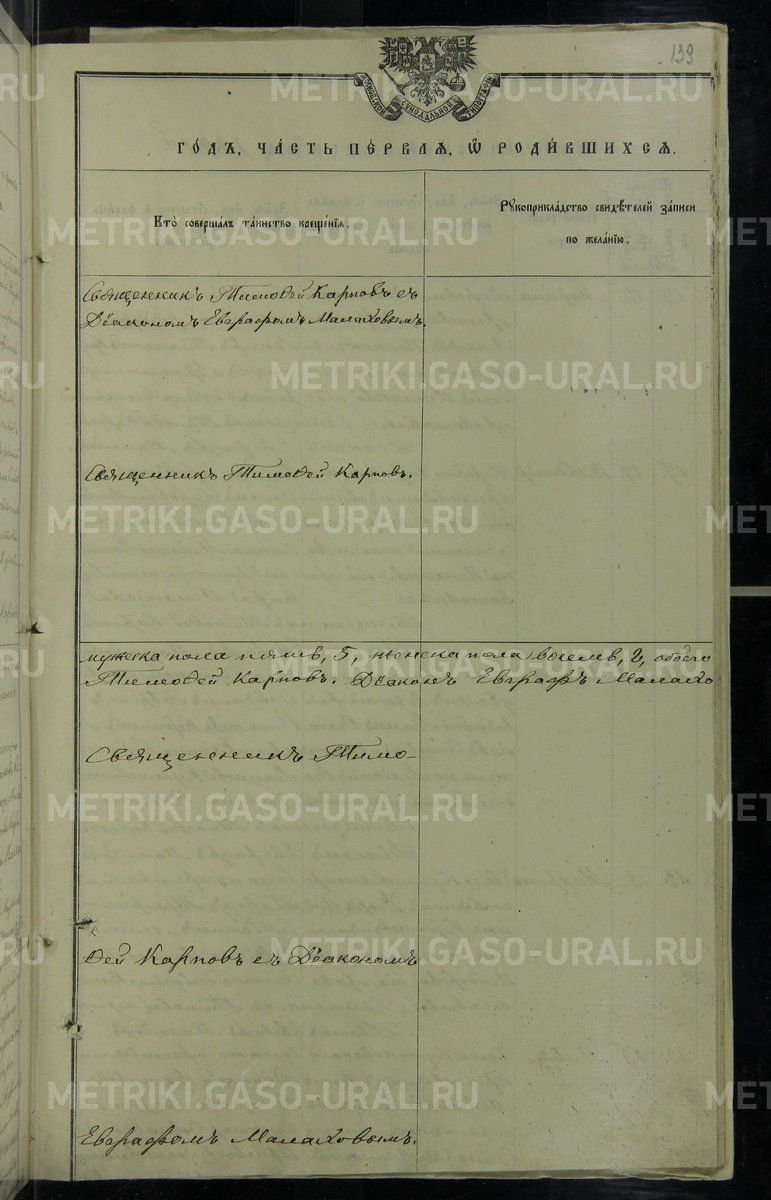 139
МОСКОВСКОЙ СѴНОДАЛЬНОЙ ТИПОГРАФІИ
ГО́ДЪ, ЧА́СТЬ ПЕ́РВАѦ, Ѡ҆ РОДИ́ВШИХСѦ.
Кто̀ соверша́лъ та́инство креще́нїѧ.
Рꙋкоприкла́дство свидѣ́телей за́писи
по жела́нїю.
Священникъ Тимоѳей Карповъ съ
Діакономъ Евграфомъ Малаховымъ.
Священникъ Тимоѳей Карповъ.
мужеска пола пять, 5, женска пола обоего
Тимоѳей Карповъ. Діаконъ Евграфъ Малахо
Священникъ Тимо-
ѳей Карповъ съ Діакономъ
Евграфомъ Малаховымъ.
METRIKI.GASO-URAL.RU